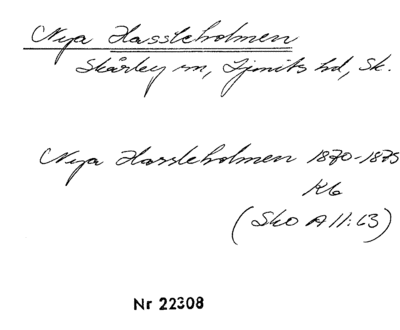 Nya Hassleholmen
Skårby sn, Ljunits hd, Sk.
Nya Hassleholmen 1870-1875
Kb
(Sko A II:63)
Nr 22308